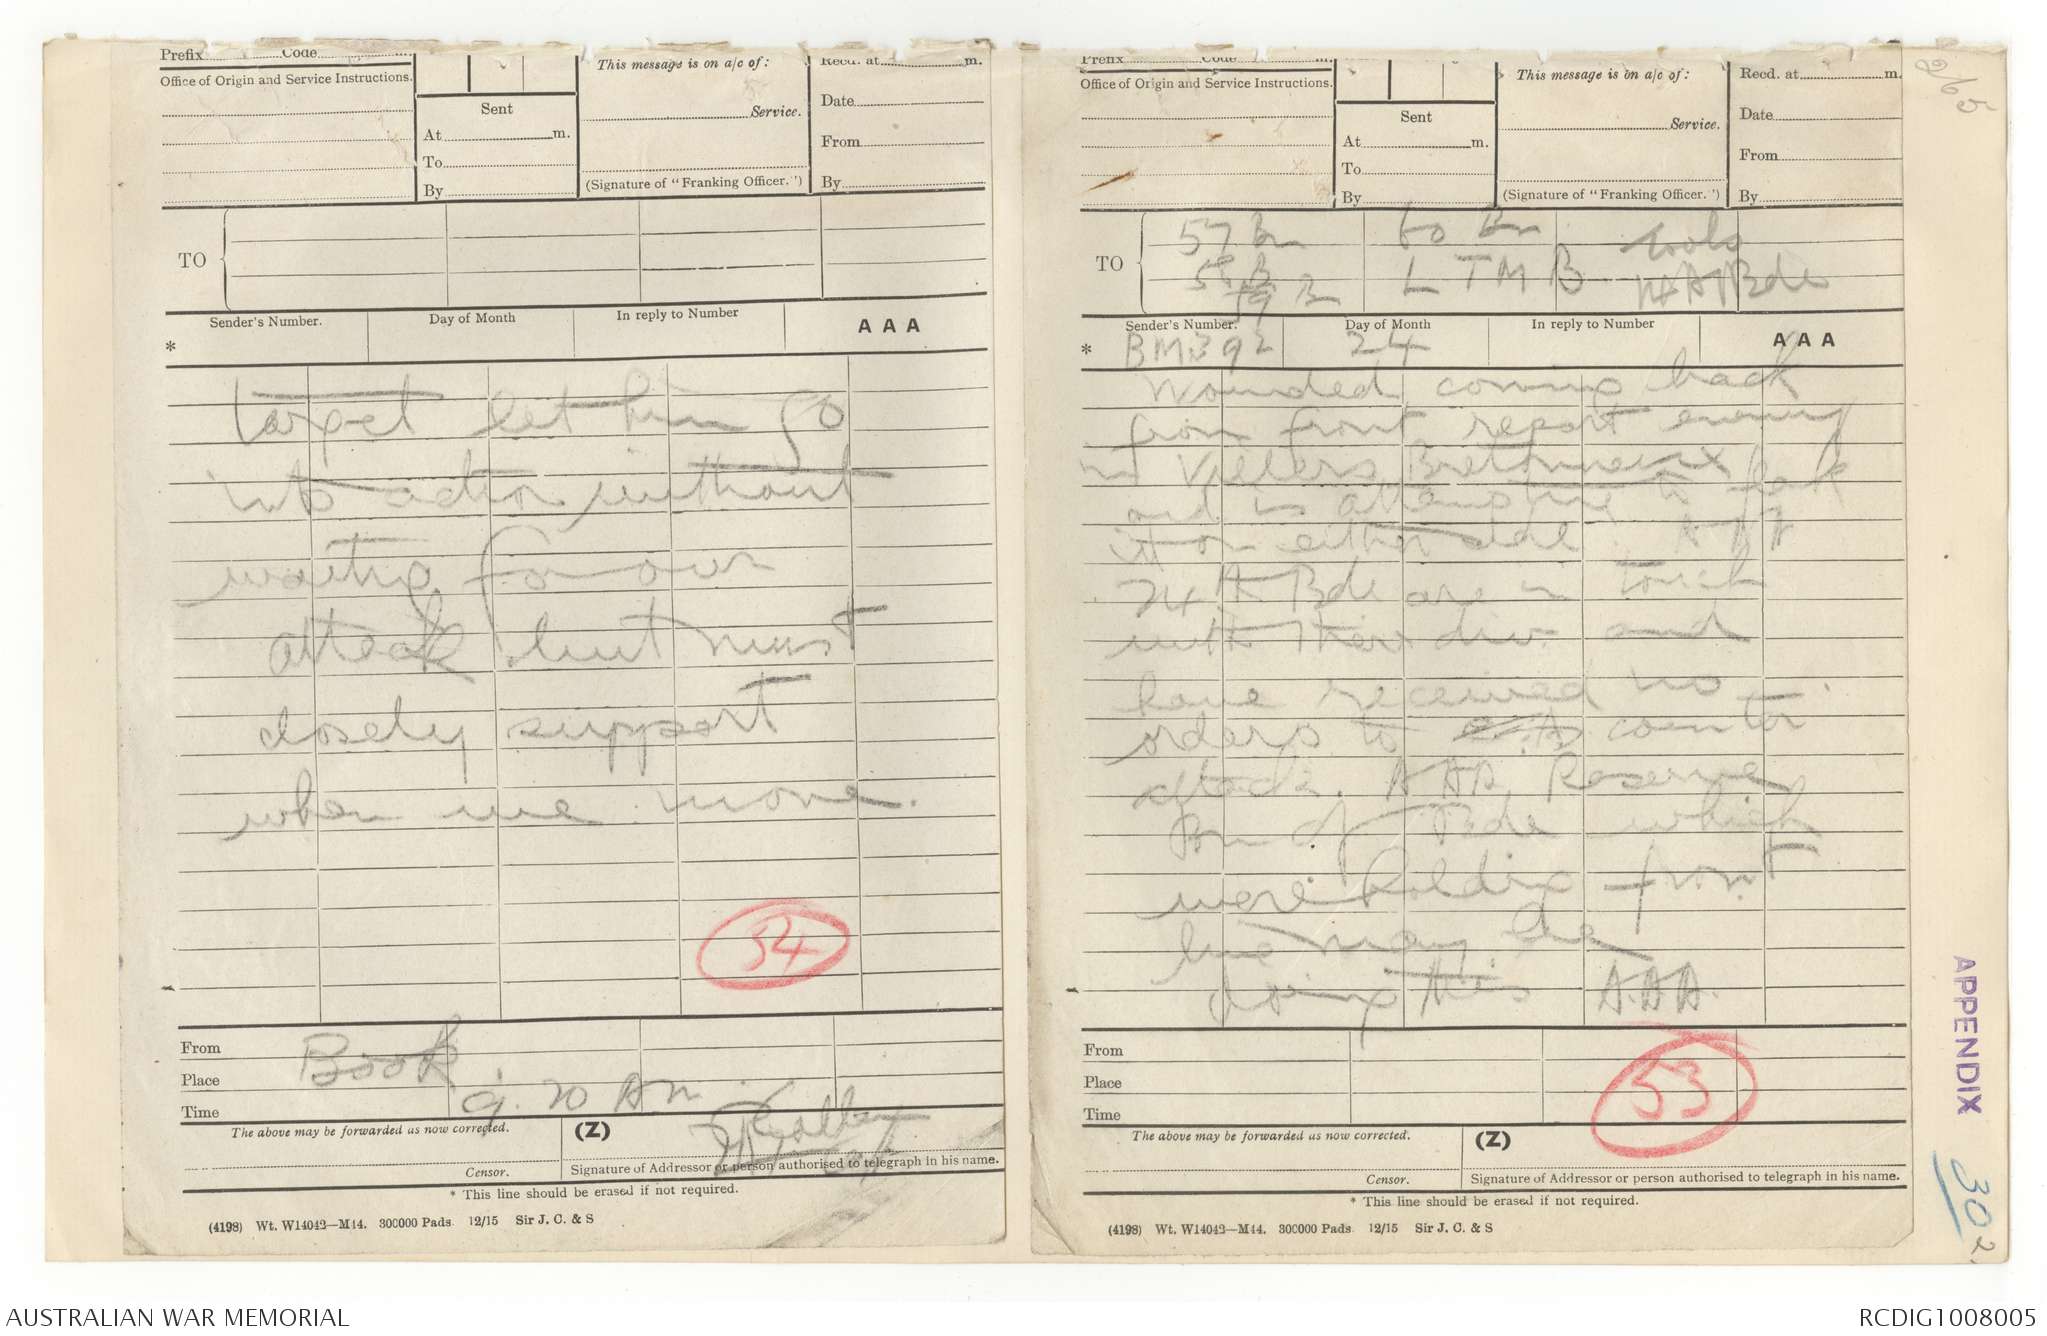 Prefix Code m.
Office of Origin and Service Instructions.
Sent
At m.
To
By
This message is on a/c of:
Service.
(Signature of "Franking Officer.")
Recd. at m.
Date
From
By
TO
Sender's Number.
Day of Month
In reply to Number
AAA
*
target let him go
into action without
waiting for our
attack but must
closely support
when we move.
54
From Book
Place
Time 9.20 AM
The above may be forwarded as now corrected.
(Z)
Censor.
Signature of Addressor or person authorised to telegraph in his name.
* This line should be erased if not required.
(4198) Wt. W14042—M44. 300000 Pads 12/15 Sir J. C. & S
Prefix Code m.
Office of Origin and Service Instructions.
Sent
At m.
To
By
This message is on a/c of:
Service.
(Signature of "Franking Officer.")
Recd. at m.
Date
From
By
TO
57 Bn 60 Bn
58 B LTMB 14 A Bde
59 B
Sender's Number.
Day of Month
In reply to Number
AAA
*
BM392 24
Wounded coming back
from front report enemy
in Villers Bretonneux
and is attempting to
it on either side AAA
14 A Bde are in touch
with their div and
have received no
orders to counter
attack. AAA Reserve
Bn of Bde which
were holding front
line may be
doing this AAA.
53
From
Place
Time
The above may be forwarded as now corrected.
(Z)
Censor.
Signature of Addressor or person authorised to telegraph in his name.
* This line should be erased if not required.
(4198) Wt. W14042—M44. 300000 Pads 12/15 Sir J. C. & S
APPENDIX
30
2
AUSTRALIAN WAR MEMORIAL
RCDIG1008005